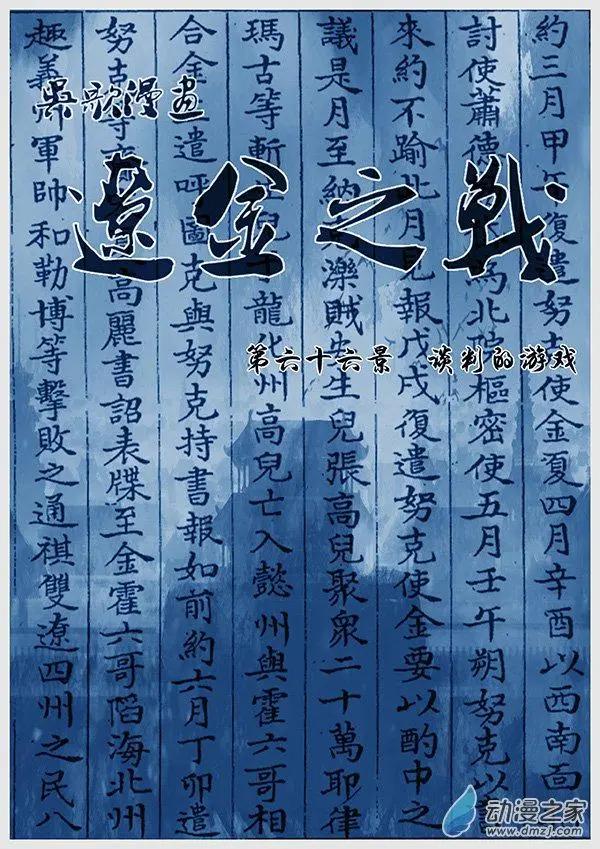 吳歌漫画
遼金之戰
第六十六景 谈判的游戏
約三月甲午復遣努使金夏四月辛酉以西南面
討使蕭德為北樞密使五月壬午朔努克以
來約不踰此月見報戊戌復遣努克使金要以酌中之
議是月至納濼賊安生兒張高兒聚衆二十萬耶律
瑪古等斬兒于龍化州高兒亡入懿州與霍六哥相
合金遣呼圖克與努克持書報如前約六月丁卯遣
努克等高麗書詔表牒至金霍六哥陷海北州
趣義軍帥和勒博等擊敗之通祺雙遼四州之民八
动漫之家
www.dmzj.com